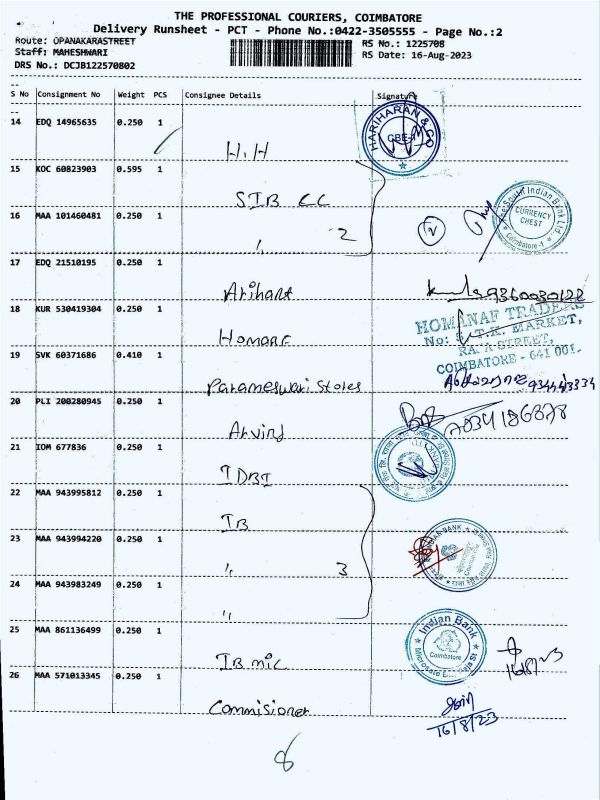 THE PROFESSIONAL COURIERS, COIMBATORE
Delivery Runsheet - PCT - Phone No.:0422-3505555 - Page No.:2
Route: OPANAKARASTREET
RS No.: 1225708
Staff: MAHESHWARI
RS Date: 16-Aug-2023
DRS No.: DCJB122570802
S No Consignment No Weight PCS Consignee Details Signature
14 EDQ 14965635 0.250 1
H.H
HARIHARAN & CO
CBE-1
15 KOC 60823903 0.595 1
SIB CC
16 MAA 101460481 0.250 1
" 2
2
The South Indian Bank Ltd.
CURRENCY
CHEST
Coimbatore-1
17 EDQ 21510195 0.250 1
Arihant
9360030122
18 KUR 530419304 0.250 1
Homanf
HOMANAF TRADERS
T.K. MARKET,
STREET,
COIMBATORE - 641 001.
19 SVK 60371686 0.410 1
Parameswari Stores
20 PLI 200280945 0.250 1
Arvind
21 IOM 677836 0.250 1
IDBI
22 MAA 943995812 0.250 1
IB
23 MAA 943994220 0.250 1
" 3
24 MAA 943983249 0.250 1
"
25 MAA 861136499 0.250 1
IB mic
Indian Bank
Coimbatore
26 MAA 571013345 0.250 1
Commisioner
16/8/23
8